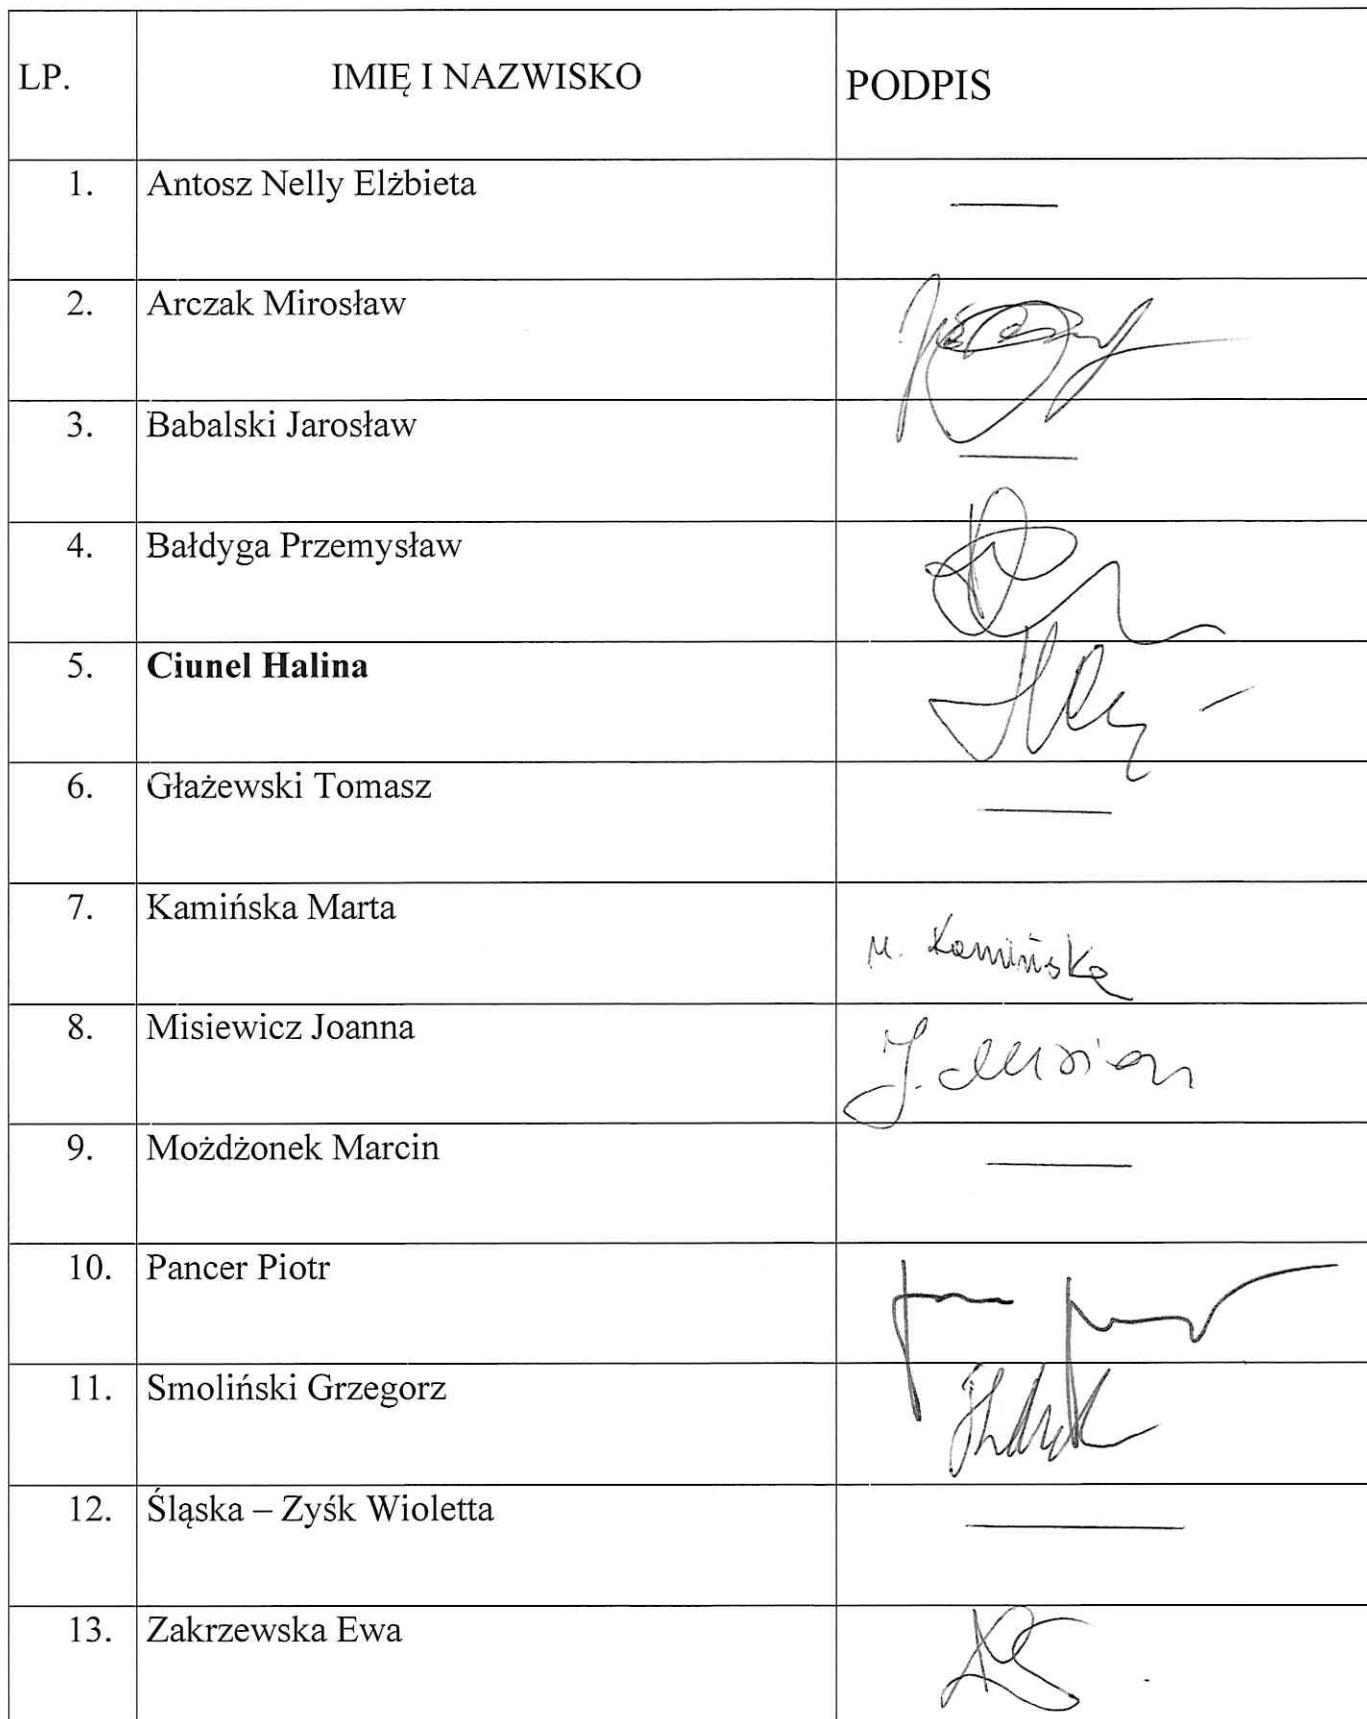 LP. IMIĘ I NAZWISKO PODPIS
1. Antosz Nelly Elżbieta
2. Arczak Mirosław
3. Babalski Jarosław
4. Bałdyga Przemysław
5. Ciunel Halina
6. Głażewski Tomasz
7. Kamińska Marta M. Kamińska
8. Misiewicz Joanna J.
9. Możdżonek Marcin
10. Pancer Piotr
11. Smoliński Grzegorz
12. Śląska – Zyśk Wioletta
13. Zakrzewska Ewa